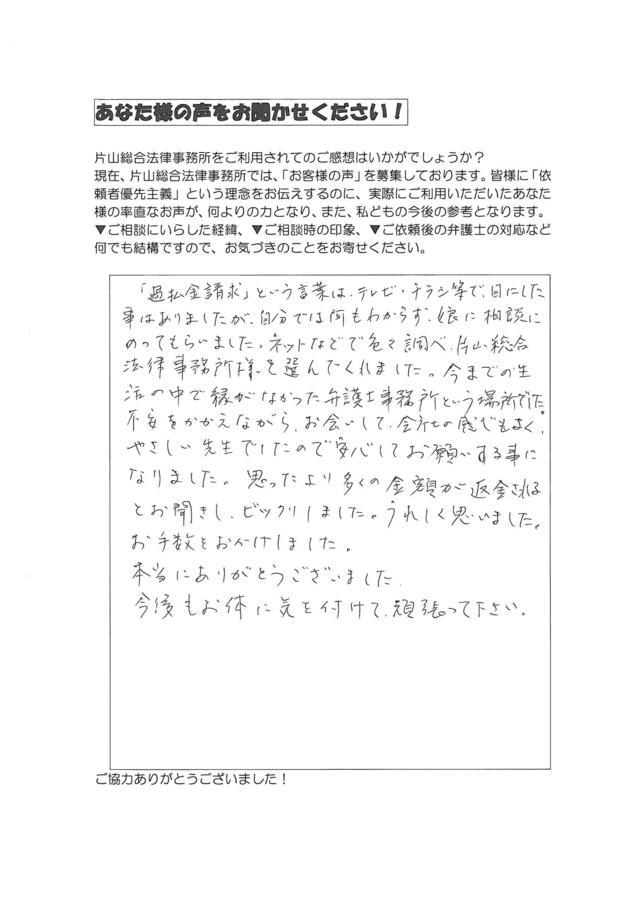 あなた様の声をお聞かせください!
片山総合法律事務所をご利用されてのご感想はいかがでしょうか?
現在、片山総合法律事務所では、「お客様の声」を募集しております。皆様に「依
頼者優先主義」という理念をお伝えするのに、実際にご利用いただいたあなた
様の率直なお声が、何よりの力となり、また、私どもの今後の参考となります。
▼ご相談にいらした経緯、▼ご相談時の印象、▼ご依頼後の弁護士の対応など
何でも結構ですので、お気づきのことをお寄せください。
「過払金請求」という言葉は、テレビ・チラシ等で、目にした
事はありましたが、自分では何もわからず、娘に相談に
のってもらいました。ネットなどで色々調べ、片山総合
法律事務所様を選んでくれました。今までの生
活の中で縁がなかった弁護士事務所という場所でした。
不安をかかえながら、お会いして、会社の感じもよく、
やさしい先生でしたので安心してお願いする事に
なりました。思ったより多くの金額が返金される
とお聞きし、ビックリしました。うれしく思いました。
お手数をおかけしました。
本当にありがとうございました。
今後もお体に気を付けて、頑張って下さい。
ご協力ありがとうございました!